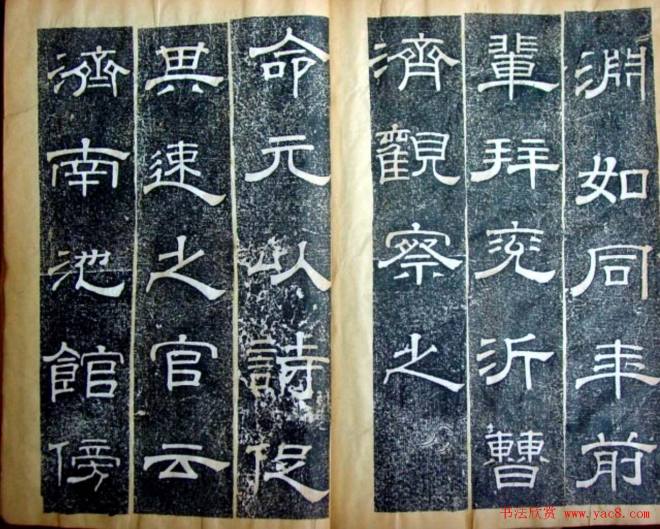 淵如同年前
輩拜兖沂曹
濟觀察之
命元以詩促
其速之官云
濟南池館傍
书法欣赏 www.yac8.com